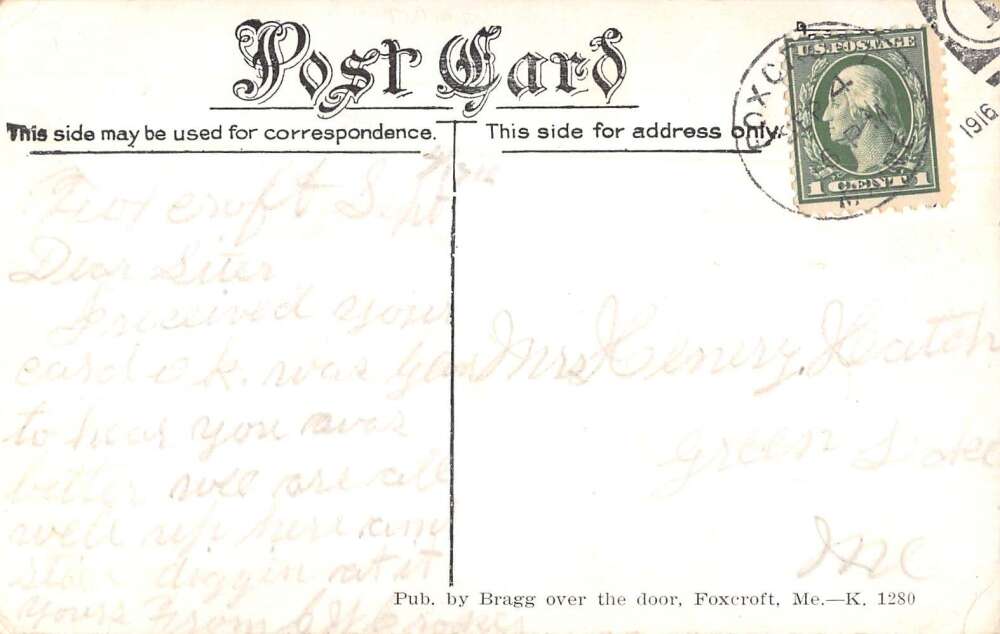 Post Card
This side may be used for correspondence.
This side for address only.
U.S. POSTAGE
1 CENT 1
FOXC
SEP 4
1916
Foxcroft Sept
Dear Siter
I received your
card o k. was glad
to hear you was
better wee are all
well up here and
still diggin at it
yours From
Mrs Henery Hatch
Green Lake
Me
Pub. by Bragg over the door, Foxcroft, Me.—K. 1280